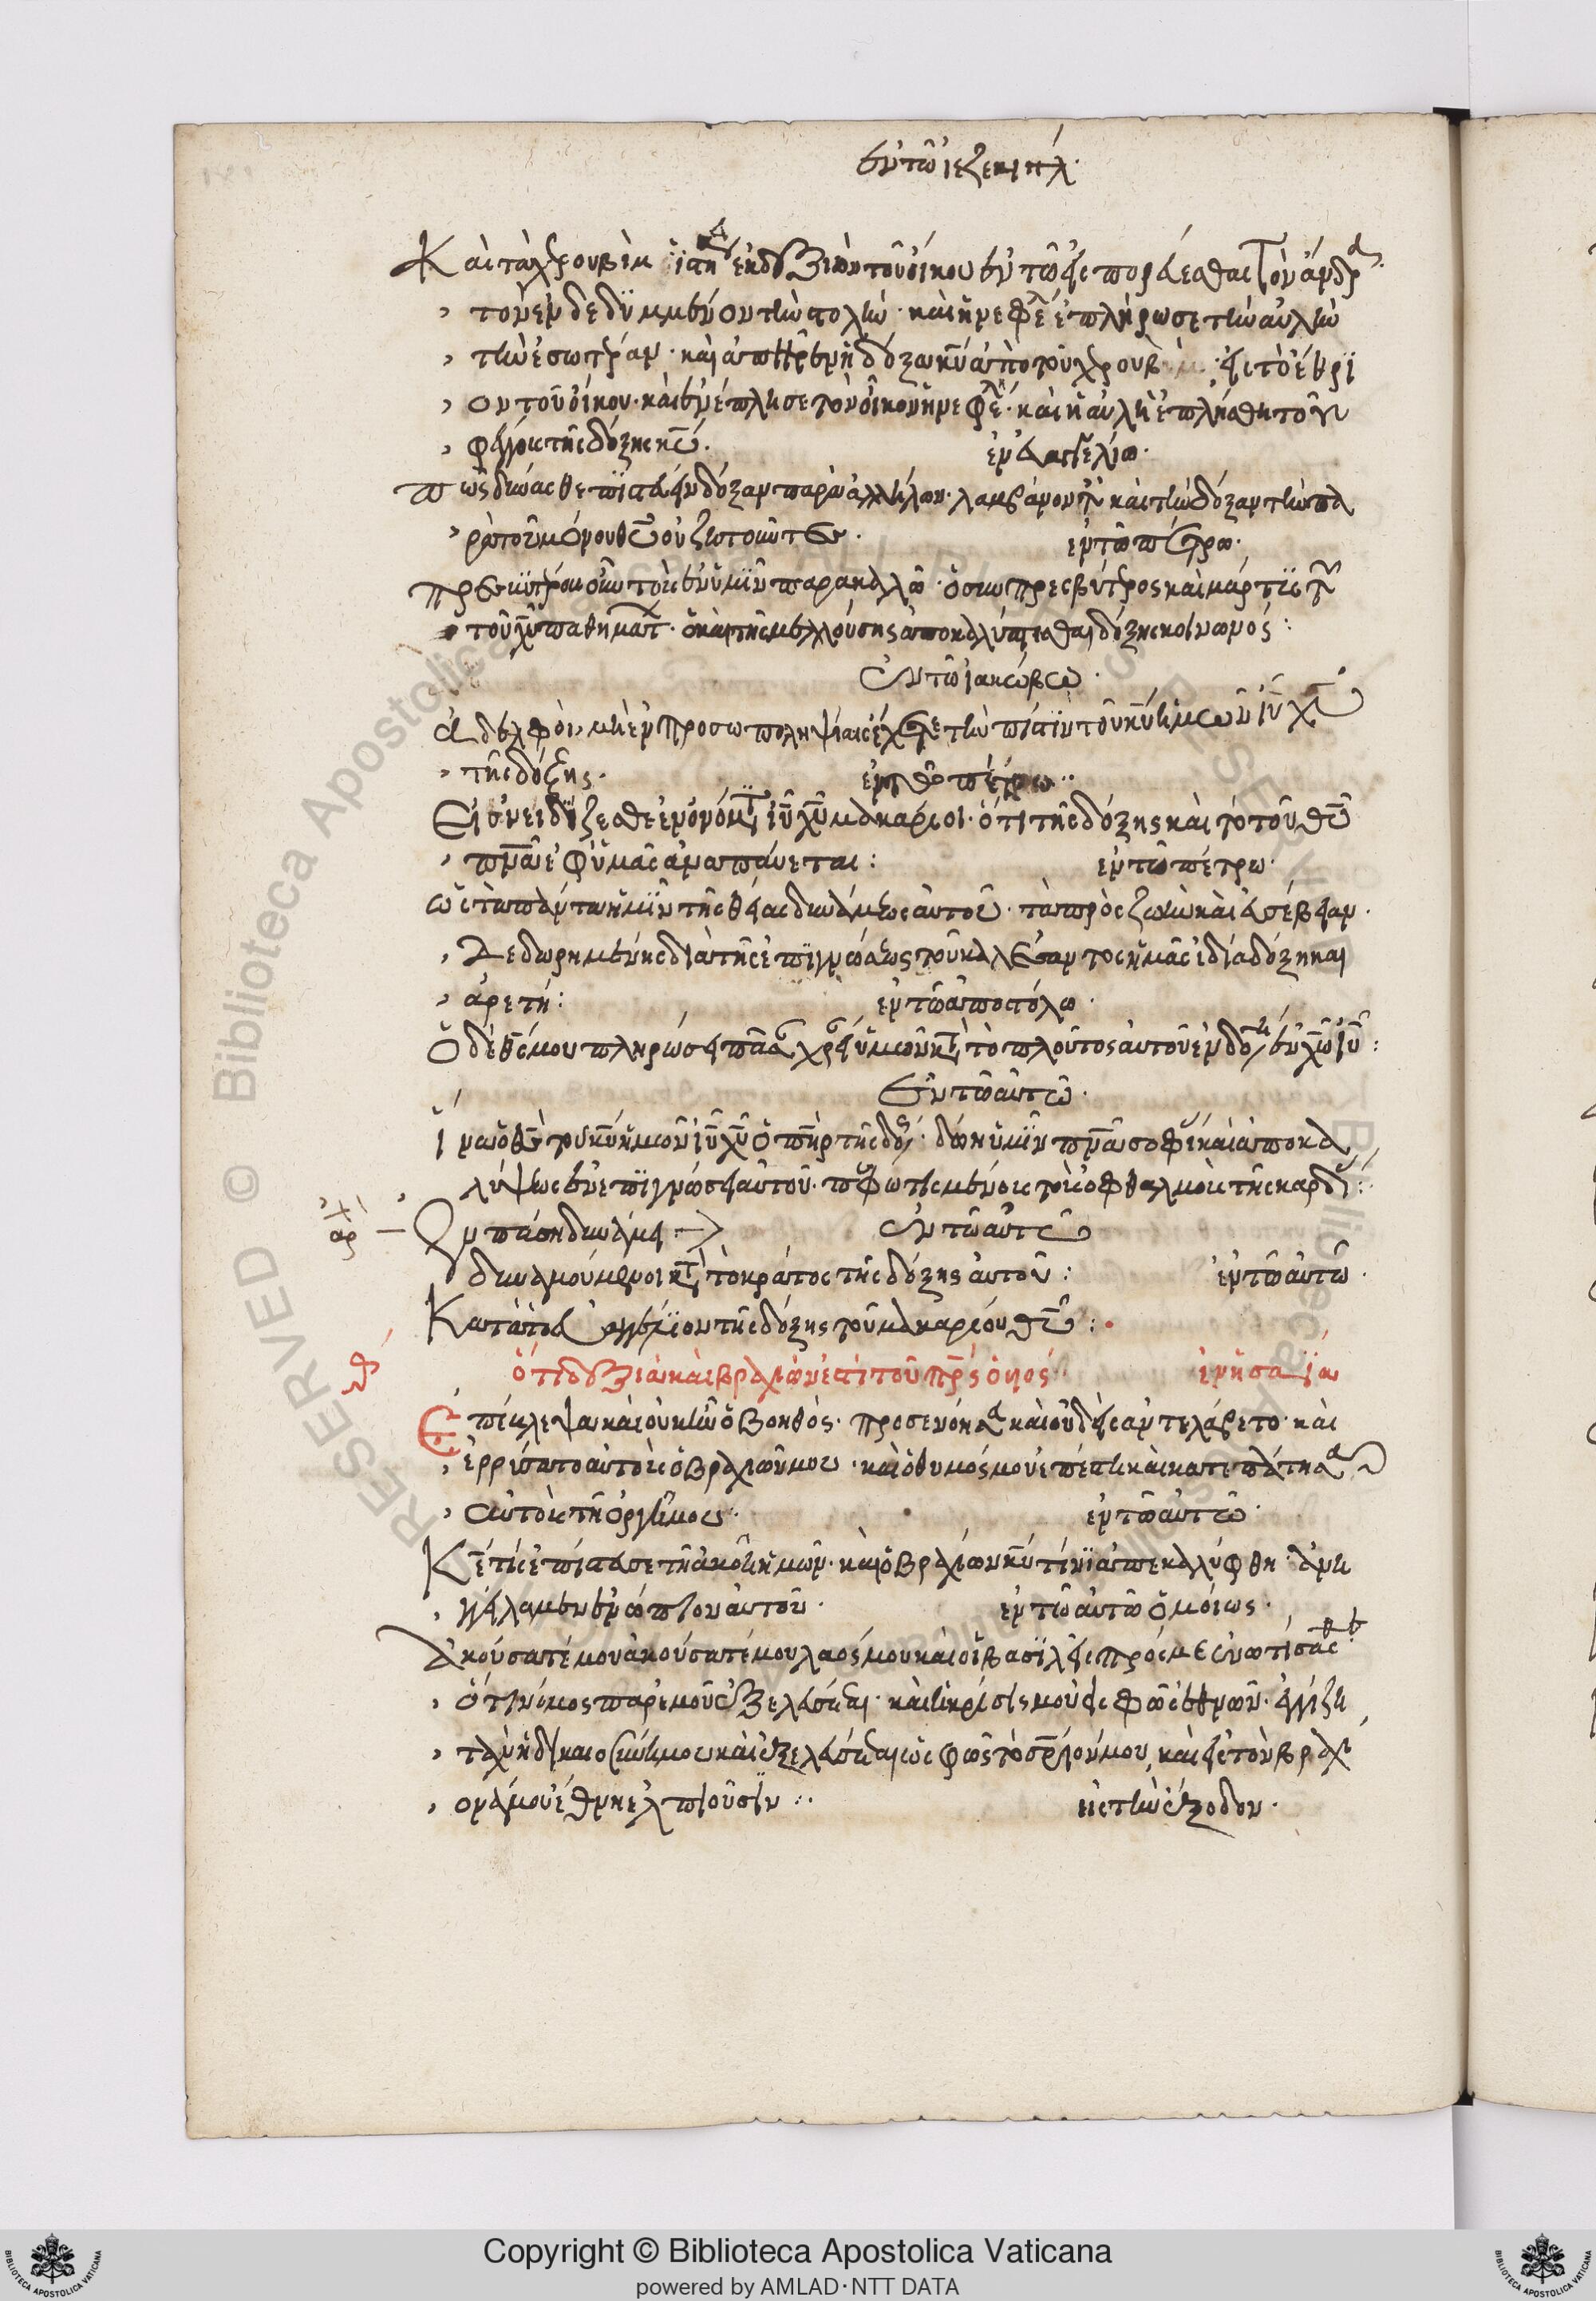 ἐν τῶ ἰεζεκιήλ.
Καὶ τὰ χερουβὶμ ἵστηκει ἐκ δεξιῶν τοῦ οἴκου ἐν τῶ εἰσπορεύεσθαι τὸν ἄνδρα
τὸν ἐνδεδυμμένον τὴν στολὴν. καὶ ἡ νεφέλη ἐπλήρωσε τὴν αὐλὴν
τὴν ἐσωτέραν. καὶ ἀπῆρεν ἡ δόξα κυ ἀπὸ τοῦ χερουβὶμ. εἰς τὸ αἴθρι
ον τοῦ οἴκου. καὶ ἐνέπλησε τὸν οἶκον ἡ νεφέλη. καὶ ἡ αὐλὴ ἐπλήσθη τοῦ
φέγγους τῆς δόξης κυ. ευαγγελίω.
πῶς δύνασθε πιστεύειν δόξαν παρὰ ἀλλήλων λαμβάνοντες καὶ τὴν δόξαν τὴν πα
ρὰ τοῦ μόνου θυ οὐ ζητοῦντες. ἐν τῶ πέτρω.
πρεσβυτέρους οὖν τοὺς ἐν ὑμῖν παρακαλῶ. ὁ συμπρεσβύτερος καὶ μάρτυς
τοῦ χυ παθημάτων. ὁ καὶ τῆς μελλούσης ἀποκαλύπτεσθαι δόξης κοινωνός:
ἐν τῶ ἰακώβω.
ἀδελφοὶ, μὴ ἐν προσωποληψίαις ἔχετε τὴν πίστιν τοῦ κυ ἡμῶν ιυ χυ
τῆς δόξης. ἐν τῶ πέτρω..
Εἰ ὀνειδίζεσθε ἐν ὀνόματι ιυ χυ μακάριοι. ὅτι τῆς δόξης καὶ τὸ τοῦ θυ
πνα ἐφ' ὑμᾶς ἀναπαύεται: ἐν τῶ πέτρω.
ὡς τὰ πάντα ἡμῖν τῆς θείας δυνάμεως αὐτοῦ. τὰ πρὸς ζωὴν καὶ εὐσέβειαν.
Δεδωρημένης διὰ τῆς ἐπιγνώσεως τοῦ καλέσαντος ἡμᾶς ἰδία δόξη καὶ
ἀρετῆ: ἐν τῶ ἀποστόλω.
Ὁ δὲ θς μου πληρώσει πᾶσαν χρείαν ὑμῶν κατὰ τὸ πλοῦτος αὐτοῦ ἐν δόξη ἐν χω ιυ:
ἐν τῶ αὐτῶ.
ἵνα ὁ θς τοῦ κυ ἡμῶν ιυ χυ ὁ πηρ τῆς δόξης. δώη ὑμῖν πνα σοφίας καὶ ἀποκα
λύψεως ἐν ἐπιγνώσει αὐτοῦ. πεφωτισμένους τοὺς ὀφθαλμοὺς τῆς καρδίας:
Ἐν πάση δυνάμει ἐν τῶ αὐτῶ
δυναμούμενοι κατὰ τὸ κράτος τῆς δόξης αὐτοῦ: ἐν τῶ αὐτῶ.
Κατὰ τὸ εὐαγγέλιον τῆς δόξης τοῦ μακαρίου θυ:
ὅτι δεξιὰ καὶ βραχίων ἐστὶ τοῦ πρς ὁ υἱός. ἐν ἡσαΐα
Ἐπέβλεψα καὶ οὐκ ἦν ὁ βοηθός. προσενόησα καὶ οὐδεὶς ἀντελάβετο. καὶ
ἐρρύσατο αὐτοὺς ὁ βραχίων μου. καὶ ὁ θυμός μου ἐπέστη καὶ κατεπάτησα
αὐτοὺς τῆ ὀργῆ μου. ἐν τῶ αὐτῶ.
Κε τίς ἐπίστευσε τῆ ἀκοῆ ἡμῶν. καὶ ὁ βραχίων κυ τίνι ἀπεκαλύφθη. ἀνη
γγείλαμεν ἐνώπιον αὐτοῦ. ἐν τῶ αὐτῶ ὁμοίως.
Ἀκούσατέ μου ἀκούσατέ μου λαός μου καὶ οἱ βασιλεῖς πρός με ἐνωτίσασθε.
ὅτι νόμος παρ' ἐμοῦ ἐξελεύσεται. καὶ ἡ κρίσις μου εἰς φῶς ἐθνῶν. ἐγγίζει
ταχὺ ἡ δικαιοσύνη μου καὶ ἐξελεύσεται ὡς φῶς τὸ σριόν μου, καὶ εἰς τὸν βραχί
ονά μου ἔθνη ἐλπιοῦσιν.. εἰς τὴν ἔξοδον.
RESERVED © Biblioteca Apostolica Vaticana
Copyright © Biblioteca Apostolica Vaticana
powered by AMLAD·NTT DATA